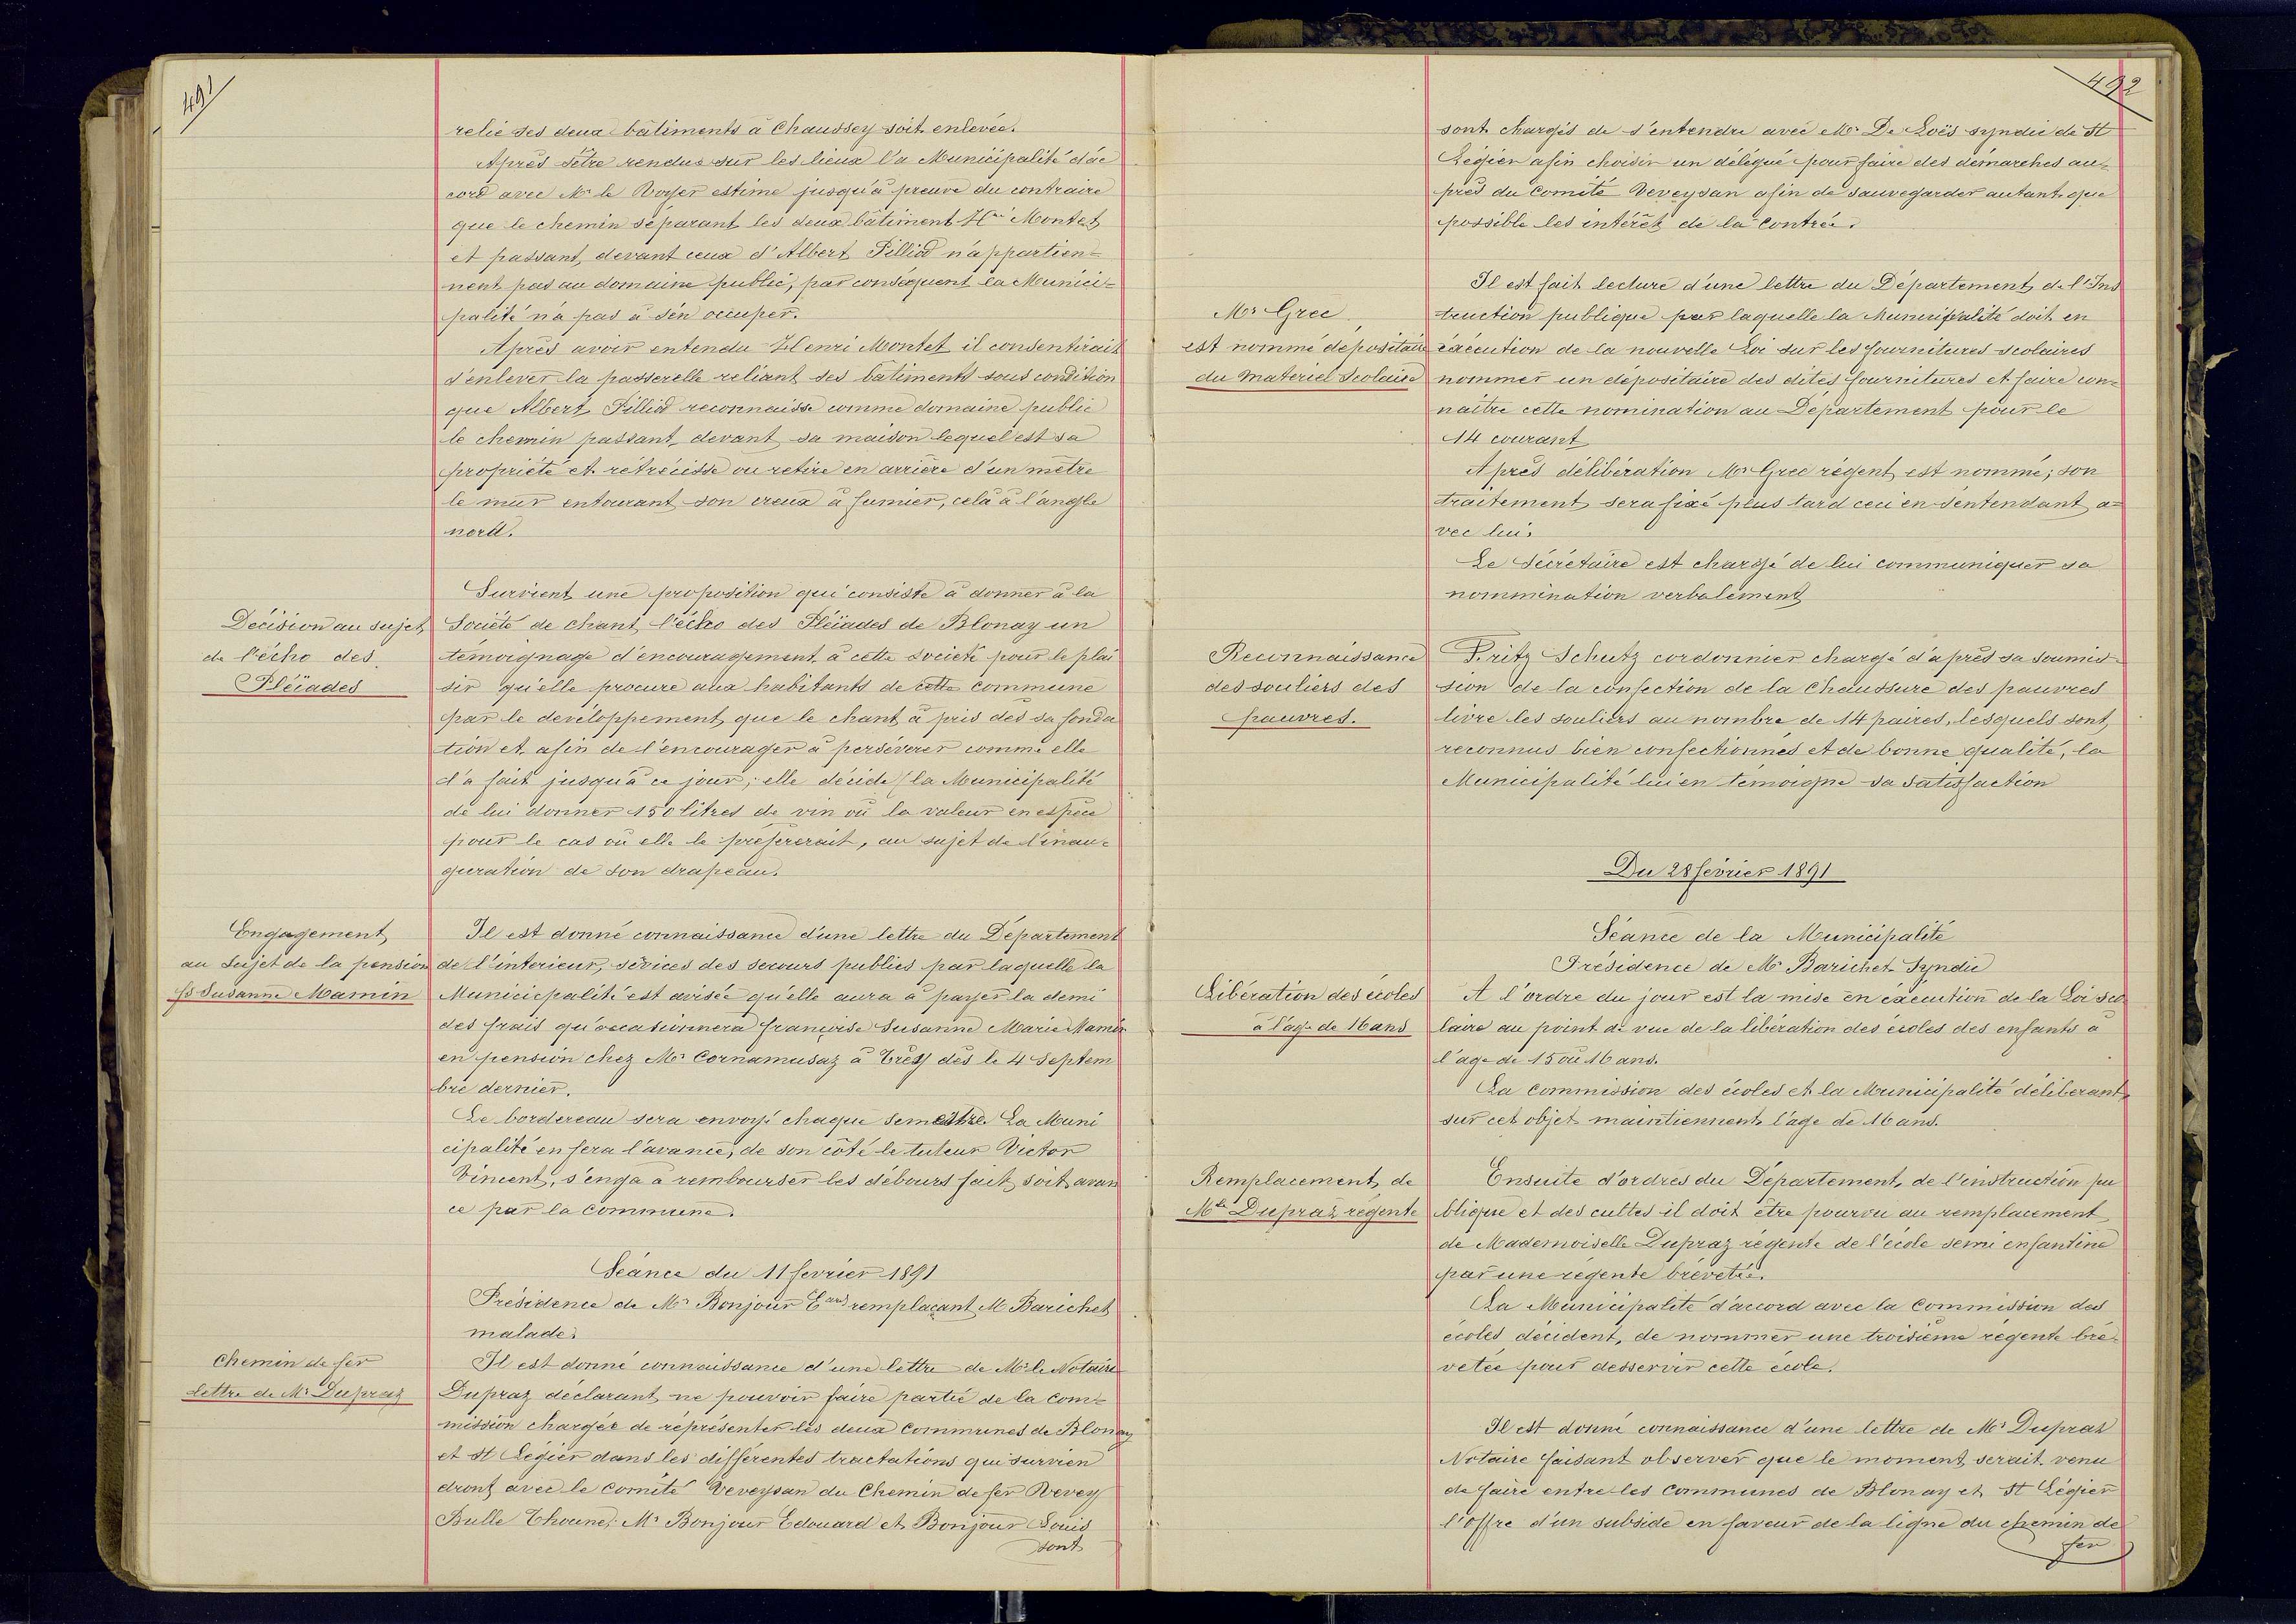 491
relie ses deux bâtiments à Chaussey soit enlevée.
Après s'être rendue sur les lieux l'a Municipalité d'ac
cord avec Mr le Voyer estime jusqu'à preuve du contraire
que le chemin séparant les deux bâtiment Hri Montet
et passant devant ceux d'Albert Pilliod n'appartien=
nent pas au domaine public, par conséquent la Munici=
palité n'a pas à s'en occuper.
Après avoir entendu Henri Montet il consentirait
d'enlever la passerelle reliant ses bâtiments sous condition
que Albert Pilliod reconnaisse comme domaine public
le chemin passant devant sa maison lequel est sa
propriété et rétrécisse ou retire en arrière d'un mètre
le mur entourant son creux à fumier, celà à l'angle
nord.
Décision au sujet
de l'écho des
Pléïades
Survient une proposition qui consiste à donner à la
Société de chant l'écho des Pléïades de Blonay un
témoignage d'encouragement à cette société pour le plai
sir qu'elle procure aux habitants de cette commune
par le développement que le chant à pris dès sa fonda
tion et afin de l'encourager à persévérer comme elle
l'a fait jusqu'à ce jour; elle décide (la Municipalité
de lui donner 150 litres de vin où la valeur en espèce
pour le cas où elle le préfererait, au sujet de l'inau=
guration de son drapeau.
Engagement
au sujet de la pension
fse Susanne Mamin
Il est donné connaissance d'une lettre du Département
de l'intérieur, sèvices des secours publics par laquelle la
Municicpalité est avisée qu'elle aura à payer la demi
des frais qu'occasionnera françoise Susanne Marie Mamin
en pension chez Mr Cornamusaz à Trey dès le 4 septem
bre dernier.
Le bordereau sera envoyé chaque semestre. La Muni
cipalité en fera l'avance, de son côté le tuteur Victor
Vincent, s'enga a rembourser les débours fait soit avan
ce par la commune.
Séance du 11 fevrier 1891
Présidence de Mr Bonjour Eard remplaçant M Barichet
malade.
Chemin de fer
Lettre de Mr Dupraz
Il est donné connaissance d'une lettre de Mr le Notaire
Dupraz déclarant ne pouvoir faire partie de la com=
mission chargée de réprésenter les deux communes de Blonay
et St Légier dans les différentes tractations qui survien
dront avec le comité Veveysan du Chemin de fer Vevey
Bulle Thoune; Mr Bonjour Edouard et Bonjour Louis
sont
492
sont chargés de s'entendre avec Mr De Loës syndic de St
Légier afin choisir un délégué pour faire des démarches au=
près du Comité Veveysan afin de sauvegarder autant que
possible les intérêt de la contrée.
Mr Grec
est nommé depositaire
du materiel Scolaire
Il est fait lecture d'une lettre du Département de l'Ins
truction publique par laquelle la Municipalité doit en
éxécution de la nouvelle Loi sur les fournitures scolaires
nommer un dépositaire des dites fournitures et faire con=
naître cette nomination au Département pour le
14 courant
Après délibération Mr Grec régent est nommé; son
traitement sera fixé plus tard ceci en s'entendant a=
vec lui.
Le Sécrétaire est chargé de lui communiquer sa
nommination verbalement
Reconnaissance
des souliers des
pauvres.
Fritz Schutz cordonnier chargé d'après sa soumis=
sion de la confection de la Chaussure des pauvres
livre les souliers au nombre de 14 paires, lesquels sont
reconnus bien confectionnés et de bonne qualité, la
Municipalité lui en témoigne sa satisfaction
Du 28 février 1891
Séance de la Municipalité
Présidence de Mr Barichet Syndic
Libération des écoles
à l'age de 16 ans
A l'ordre du jour est la mise en éxécution de la Loi sco
laire au point de vue de la libération des écoles des enfants à
l'age de 15 où 16 ans.
La commission des écoles et la Municipalité déliberant
sur cet objet maintiennent l'age de 16 ans.
Remplacement de
Mlle Dupraz régente
Ensuite d'ordres du Département de l'instruction pu
blique et des cultes il doit être pourvu au remplacement
de Mademoiselle Dupraz régente de l'école semi enfantine
par une régente brévetée.
La Municipalité d'accord avec la Commission des
écoles décident, de nommer une troisième régente bré=
vetée pour desservir cette école.
Il est donné connaissance d'une lettre de Mr Dupraz
Notaire faisant observer que le moment serait venu
de faire entre les communes de Blonay et St Légier
l'offre d'un subside en faveur de la ligne du chemin de
fer